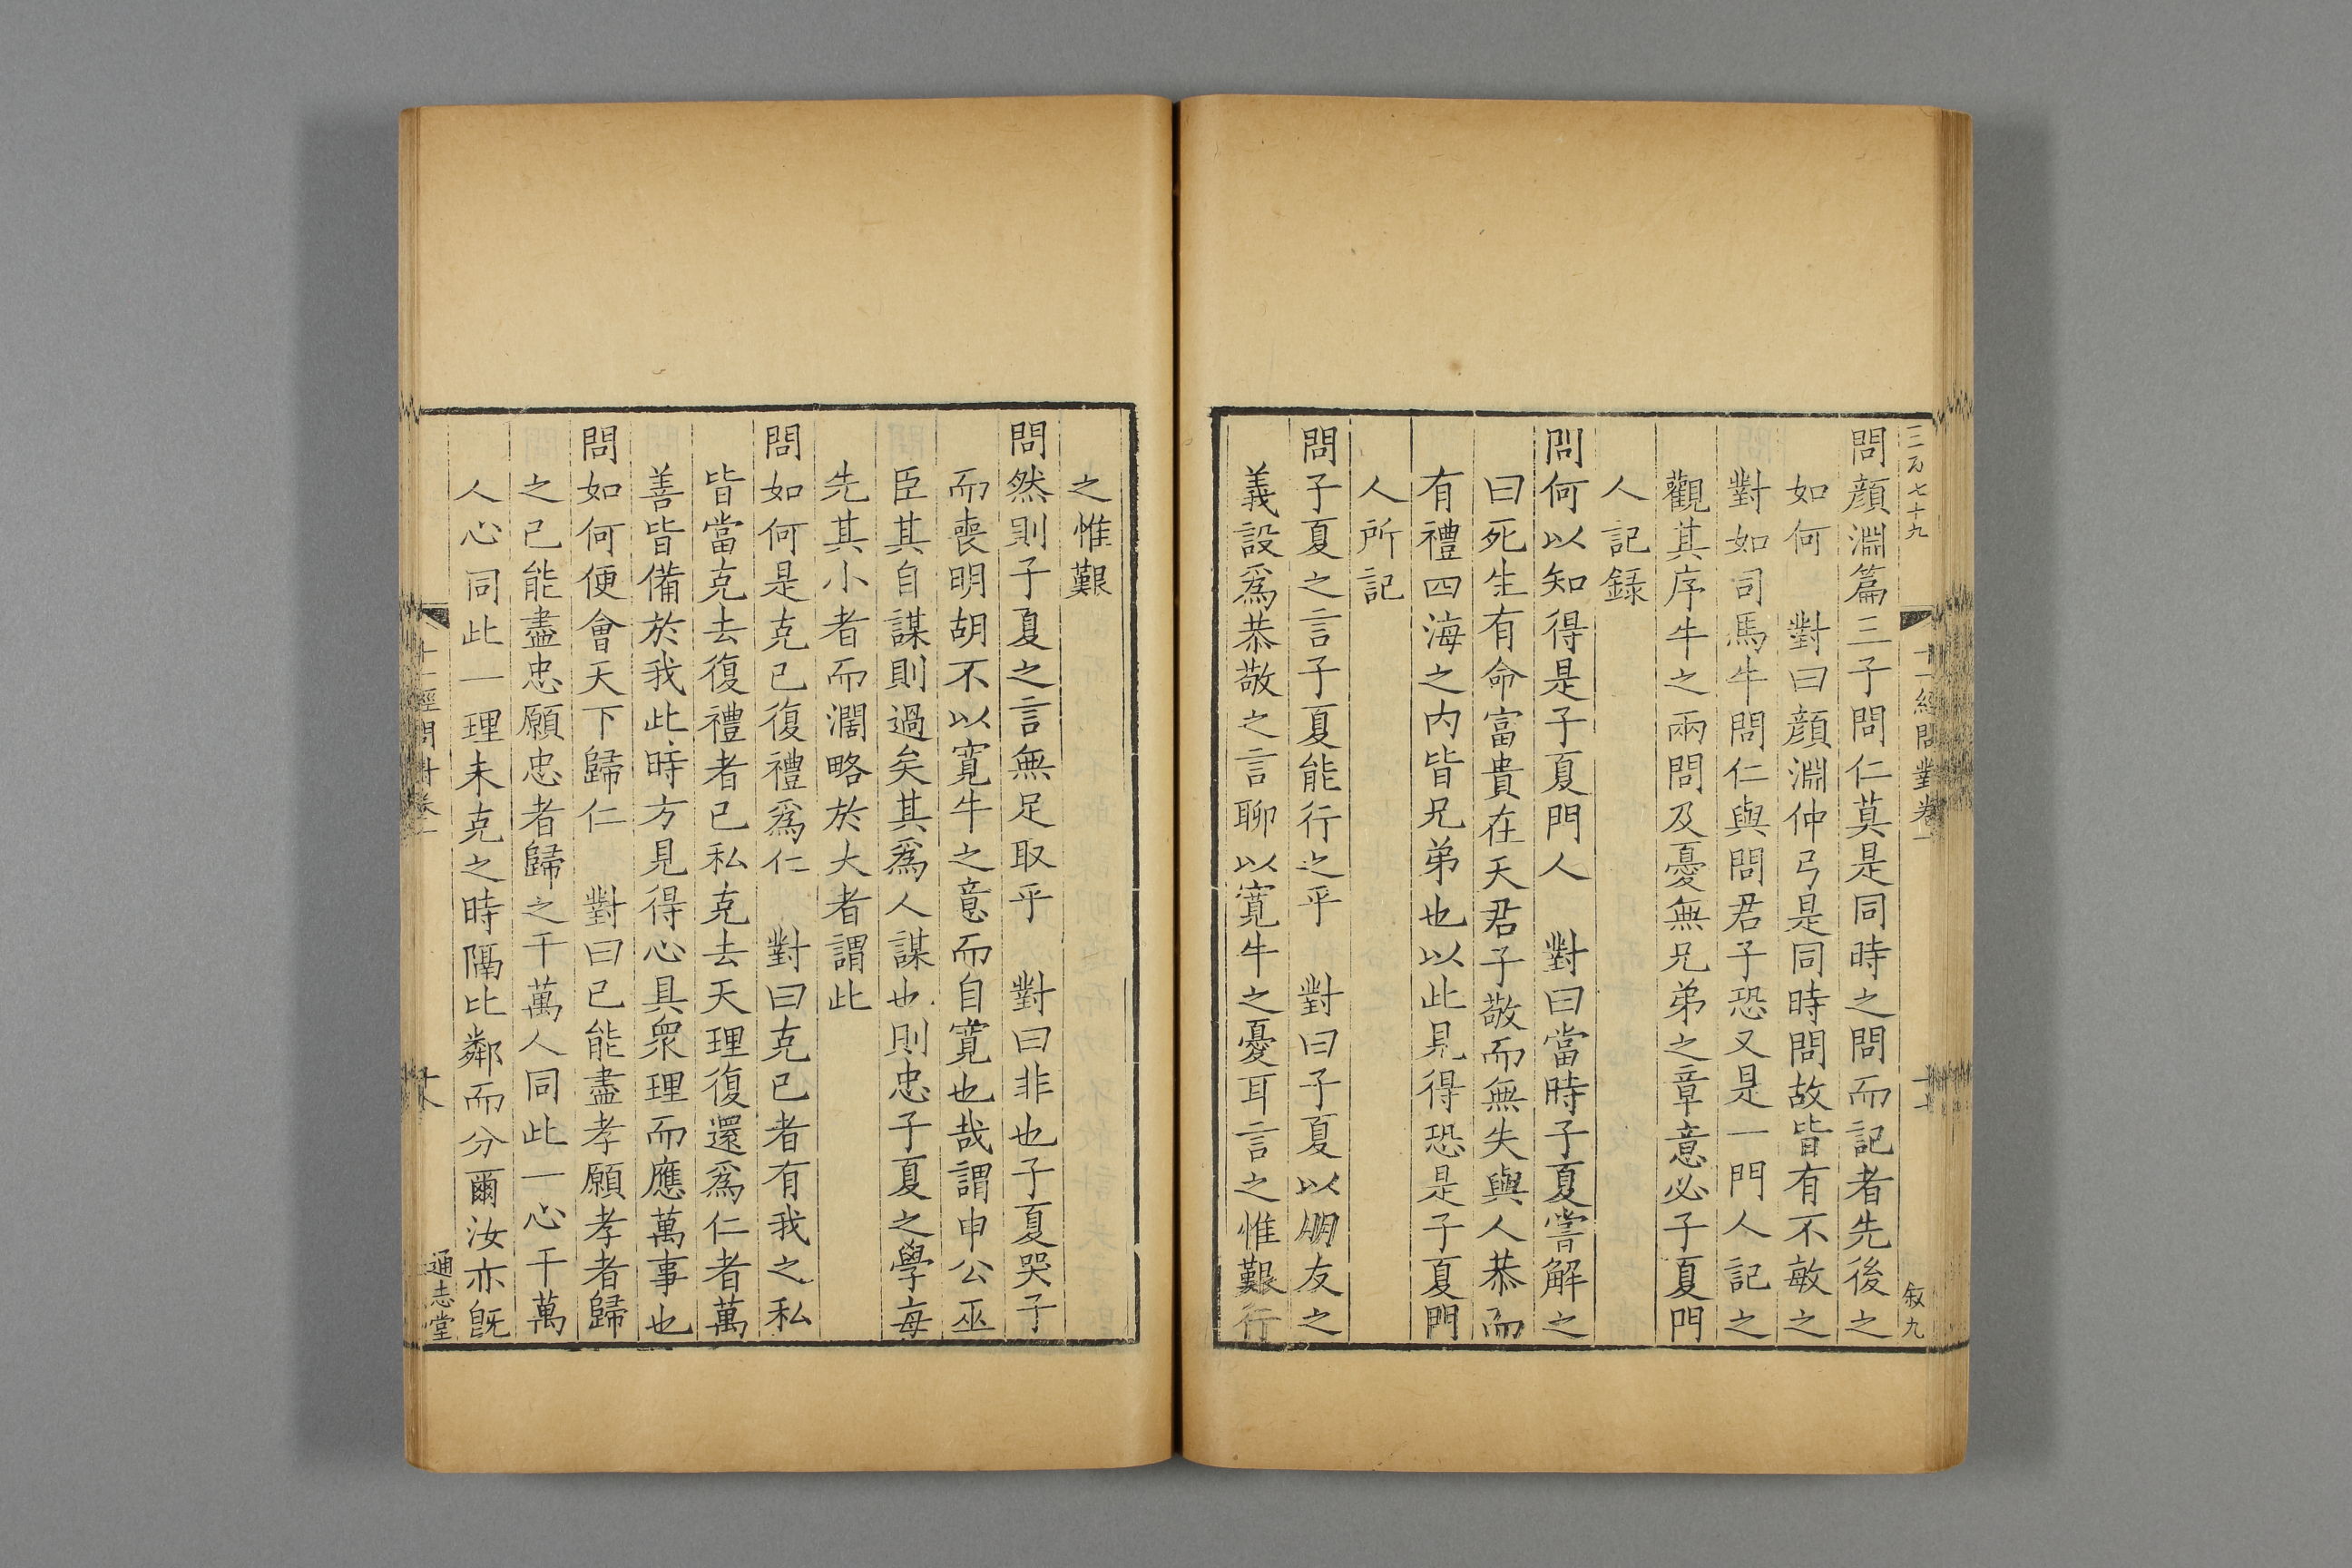 二百七十九
十一經問對卷一
叙九
問顔淵篇三子問仁莫是同時之問而記者先後之
如何　對曰顔淵仲弓是同時問故皆有不敏之
對如司馬牛問仁與問君子恐又是一門人記之
觀其序牛之兩問及憂無兄弟之章意必子夏門
人記録
問何以知得是子夏門人　對曰當時子夏嘗解之
曰死生有命富貴在天君子敬而無失與人恭而
有禮四海之内皆兄弟也以此見得恐是子夏門
人所記
問子夏之言子夏能行之乎　對曰子夏以朋友之
義設爲恭敬之言聊以寬牛之憂耳言之惟艱行
之惟艱
問然則子夏之言無足取乎　對曰非也子夏哭子
而喪明胡不以寬牛之意而自寬也哉謂申公巫
臣其自謀則過矣其爲人謀也則忠子夏之學毎
先其小者而濶略於大者謂此
問如何是克己復禮爲仁　對曰克己者有我之私
皆當克去復禮者己私克去天理復還爲仁者萬
善皆備於我此時方見得心具衆理而應萬事也
問如何便會天下歸仁　對曰己能盡孝願孝者歸
之己能盡忠願忠者歸之千萬人同此一心千萬
人心同此一理未克之時隔比鄰而分爾汝亦旣
十一經問對卷一
通志堂